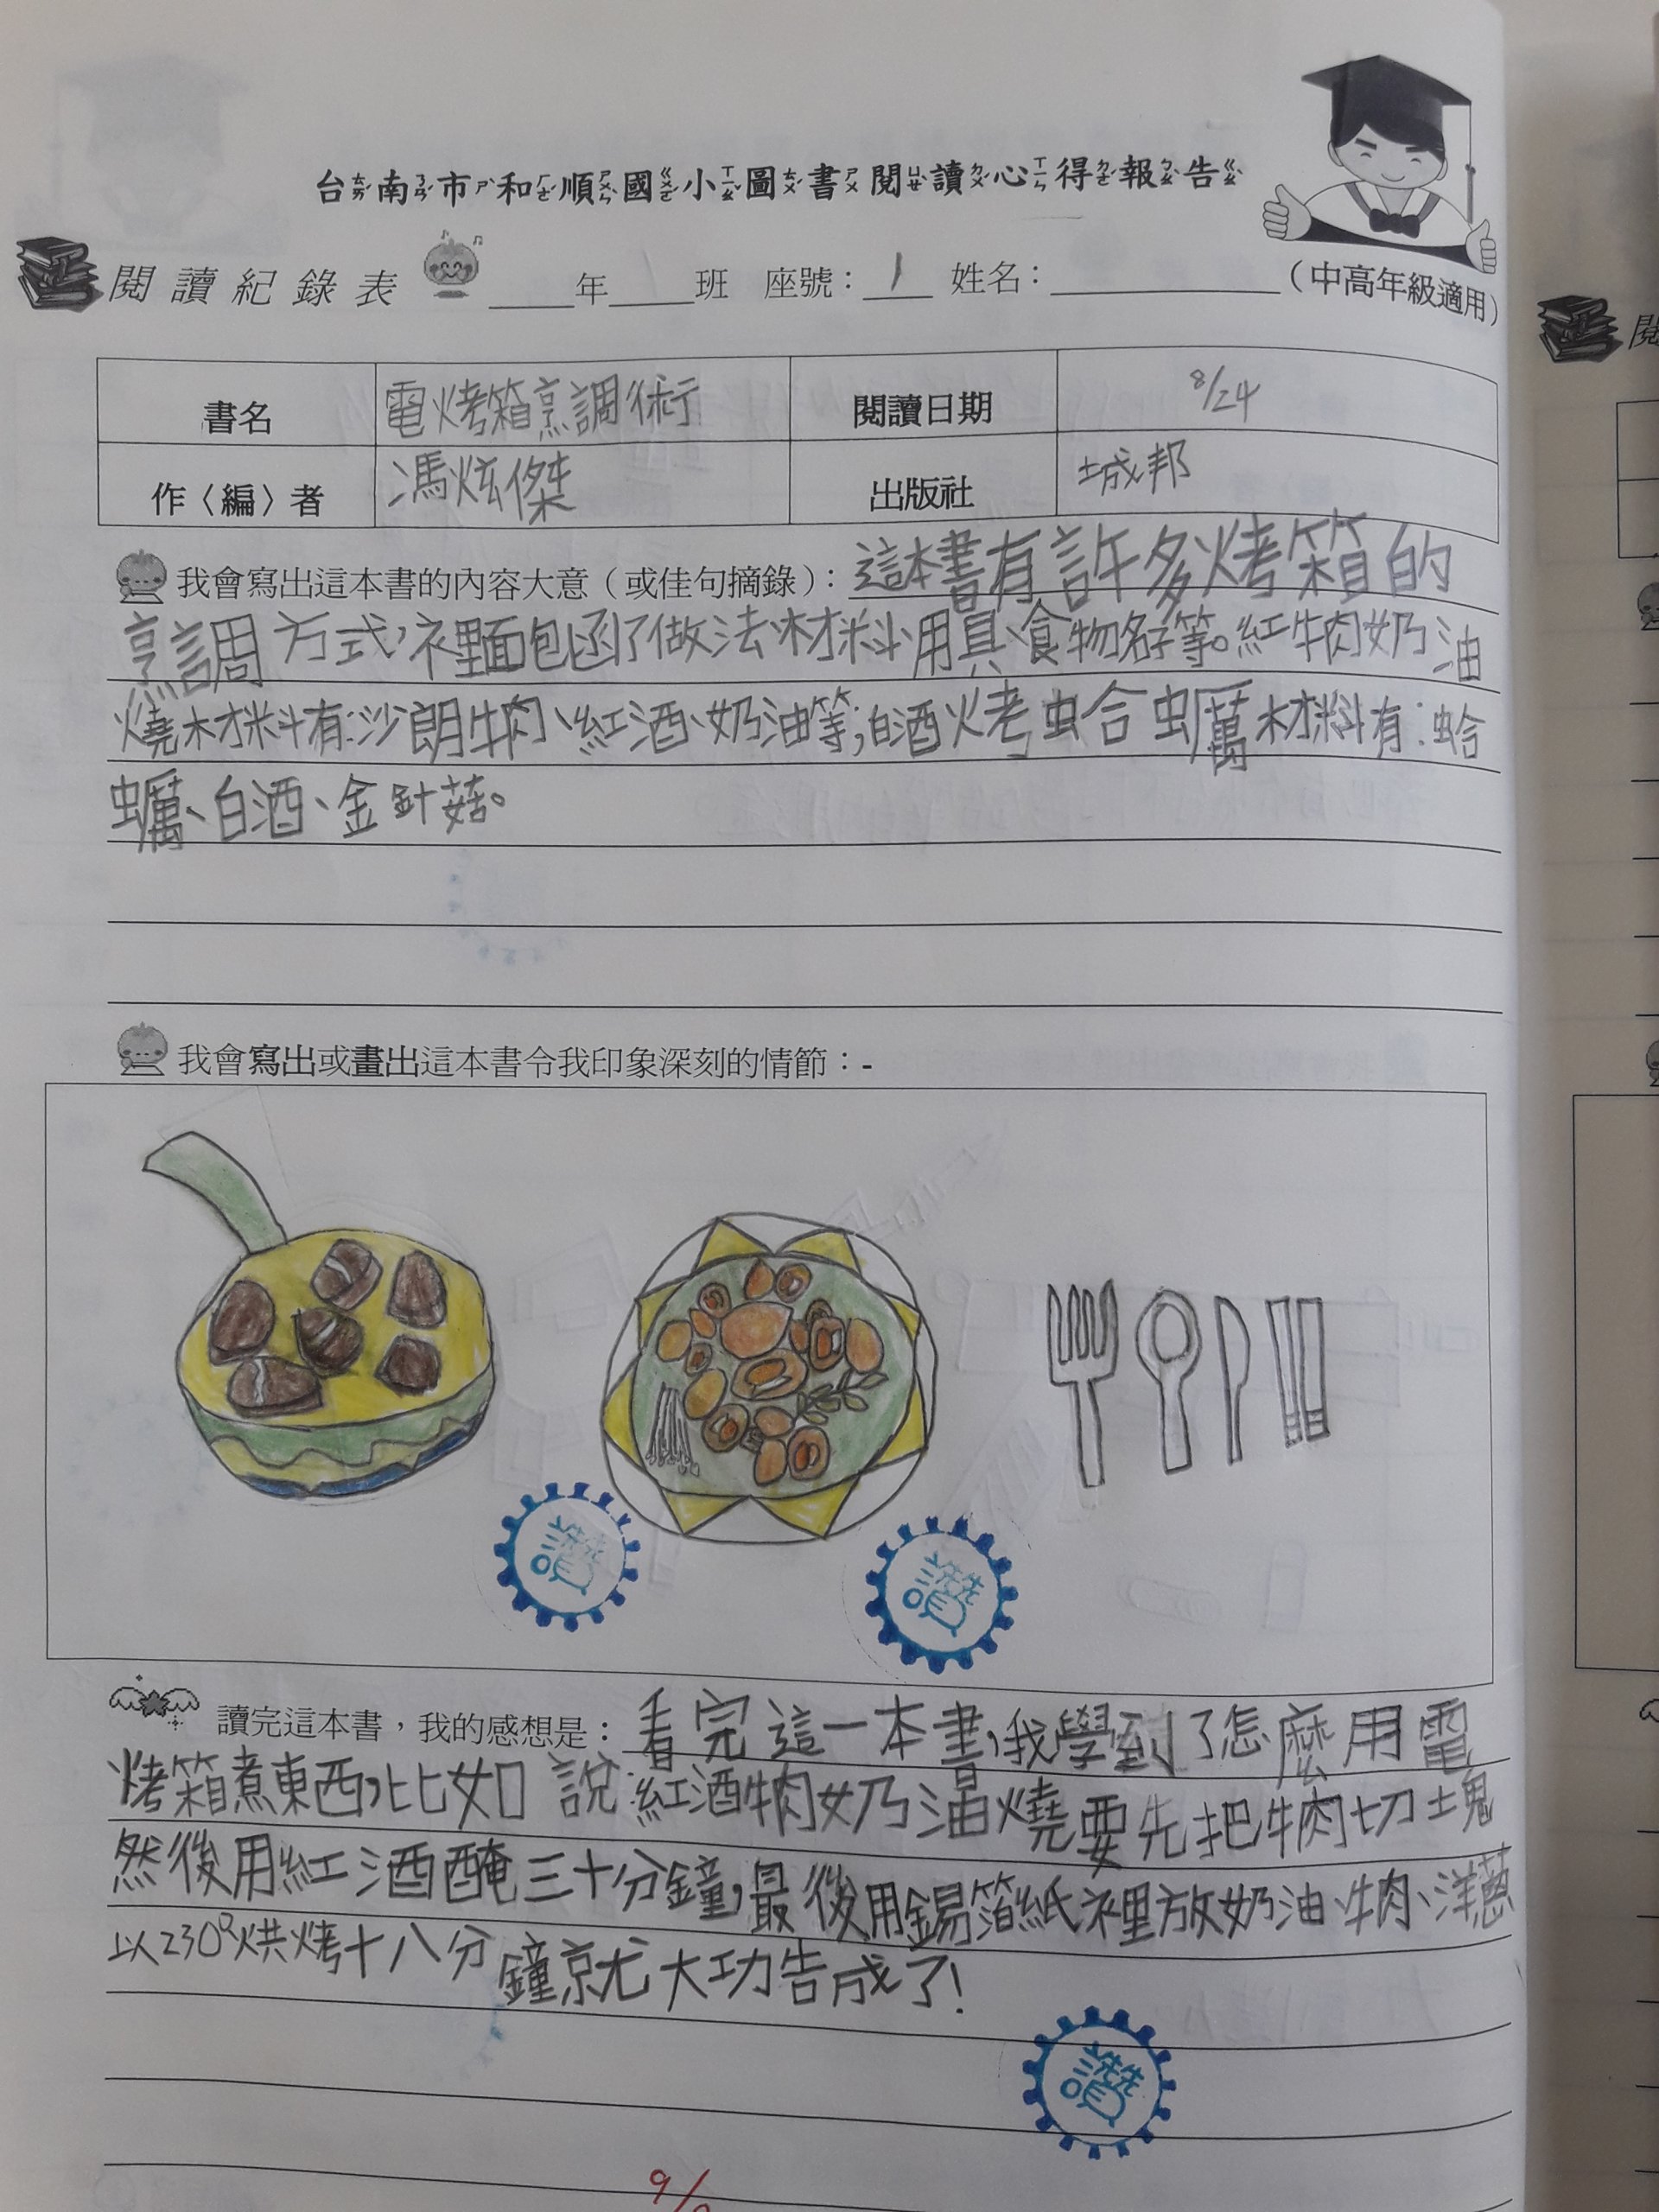 台南市和順國小圖書閱讀心得報告
閱讀紀錄表 年 班 座號：1 姓名： （中高年級適用）
書名 電烤箱烹調術 閱讀日期 8/24
作〈編〉者 馮炫傑 出版社 城邦
我會寫出這本書的內容大意（或佳句摘錄）：這本書有許多烤箱的
烹調方式，裡面包函了做法、材料、用具、食物名字等。紅牛肉奶油
燒材料有：沙朗牛肉、紅酒、奶油等；白酒烤蛤蠣材料有：蛤
蠣、白酒、金針菇。
我會寫出或畫出這本書令我印象深刻的情節：-
讚
讚
讀完這本書，我的感想是：看完這一本書，我學到了怎麼用電
烤箱煮東西，比如說：紅酒牛肉奶油燒要先把牛肉切塊
然後用紅酒醃三十分鐘，最後用錫箔紙裡放奶油、牛肉、洋蔥
以230°烘烤十八分鐘就大功告成了！
讚
9/